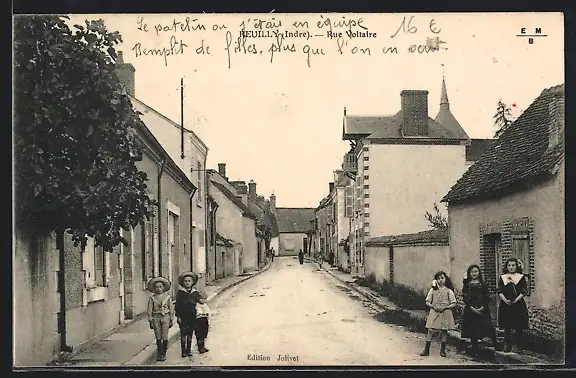 Le patelin ou j'étais en équipe 16 €
REUILLY (Indre). — Rue Voltaire
E M
B
Rempli et de filles, plus que l'on en
Edition Jolivet